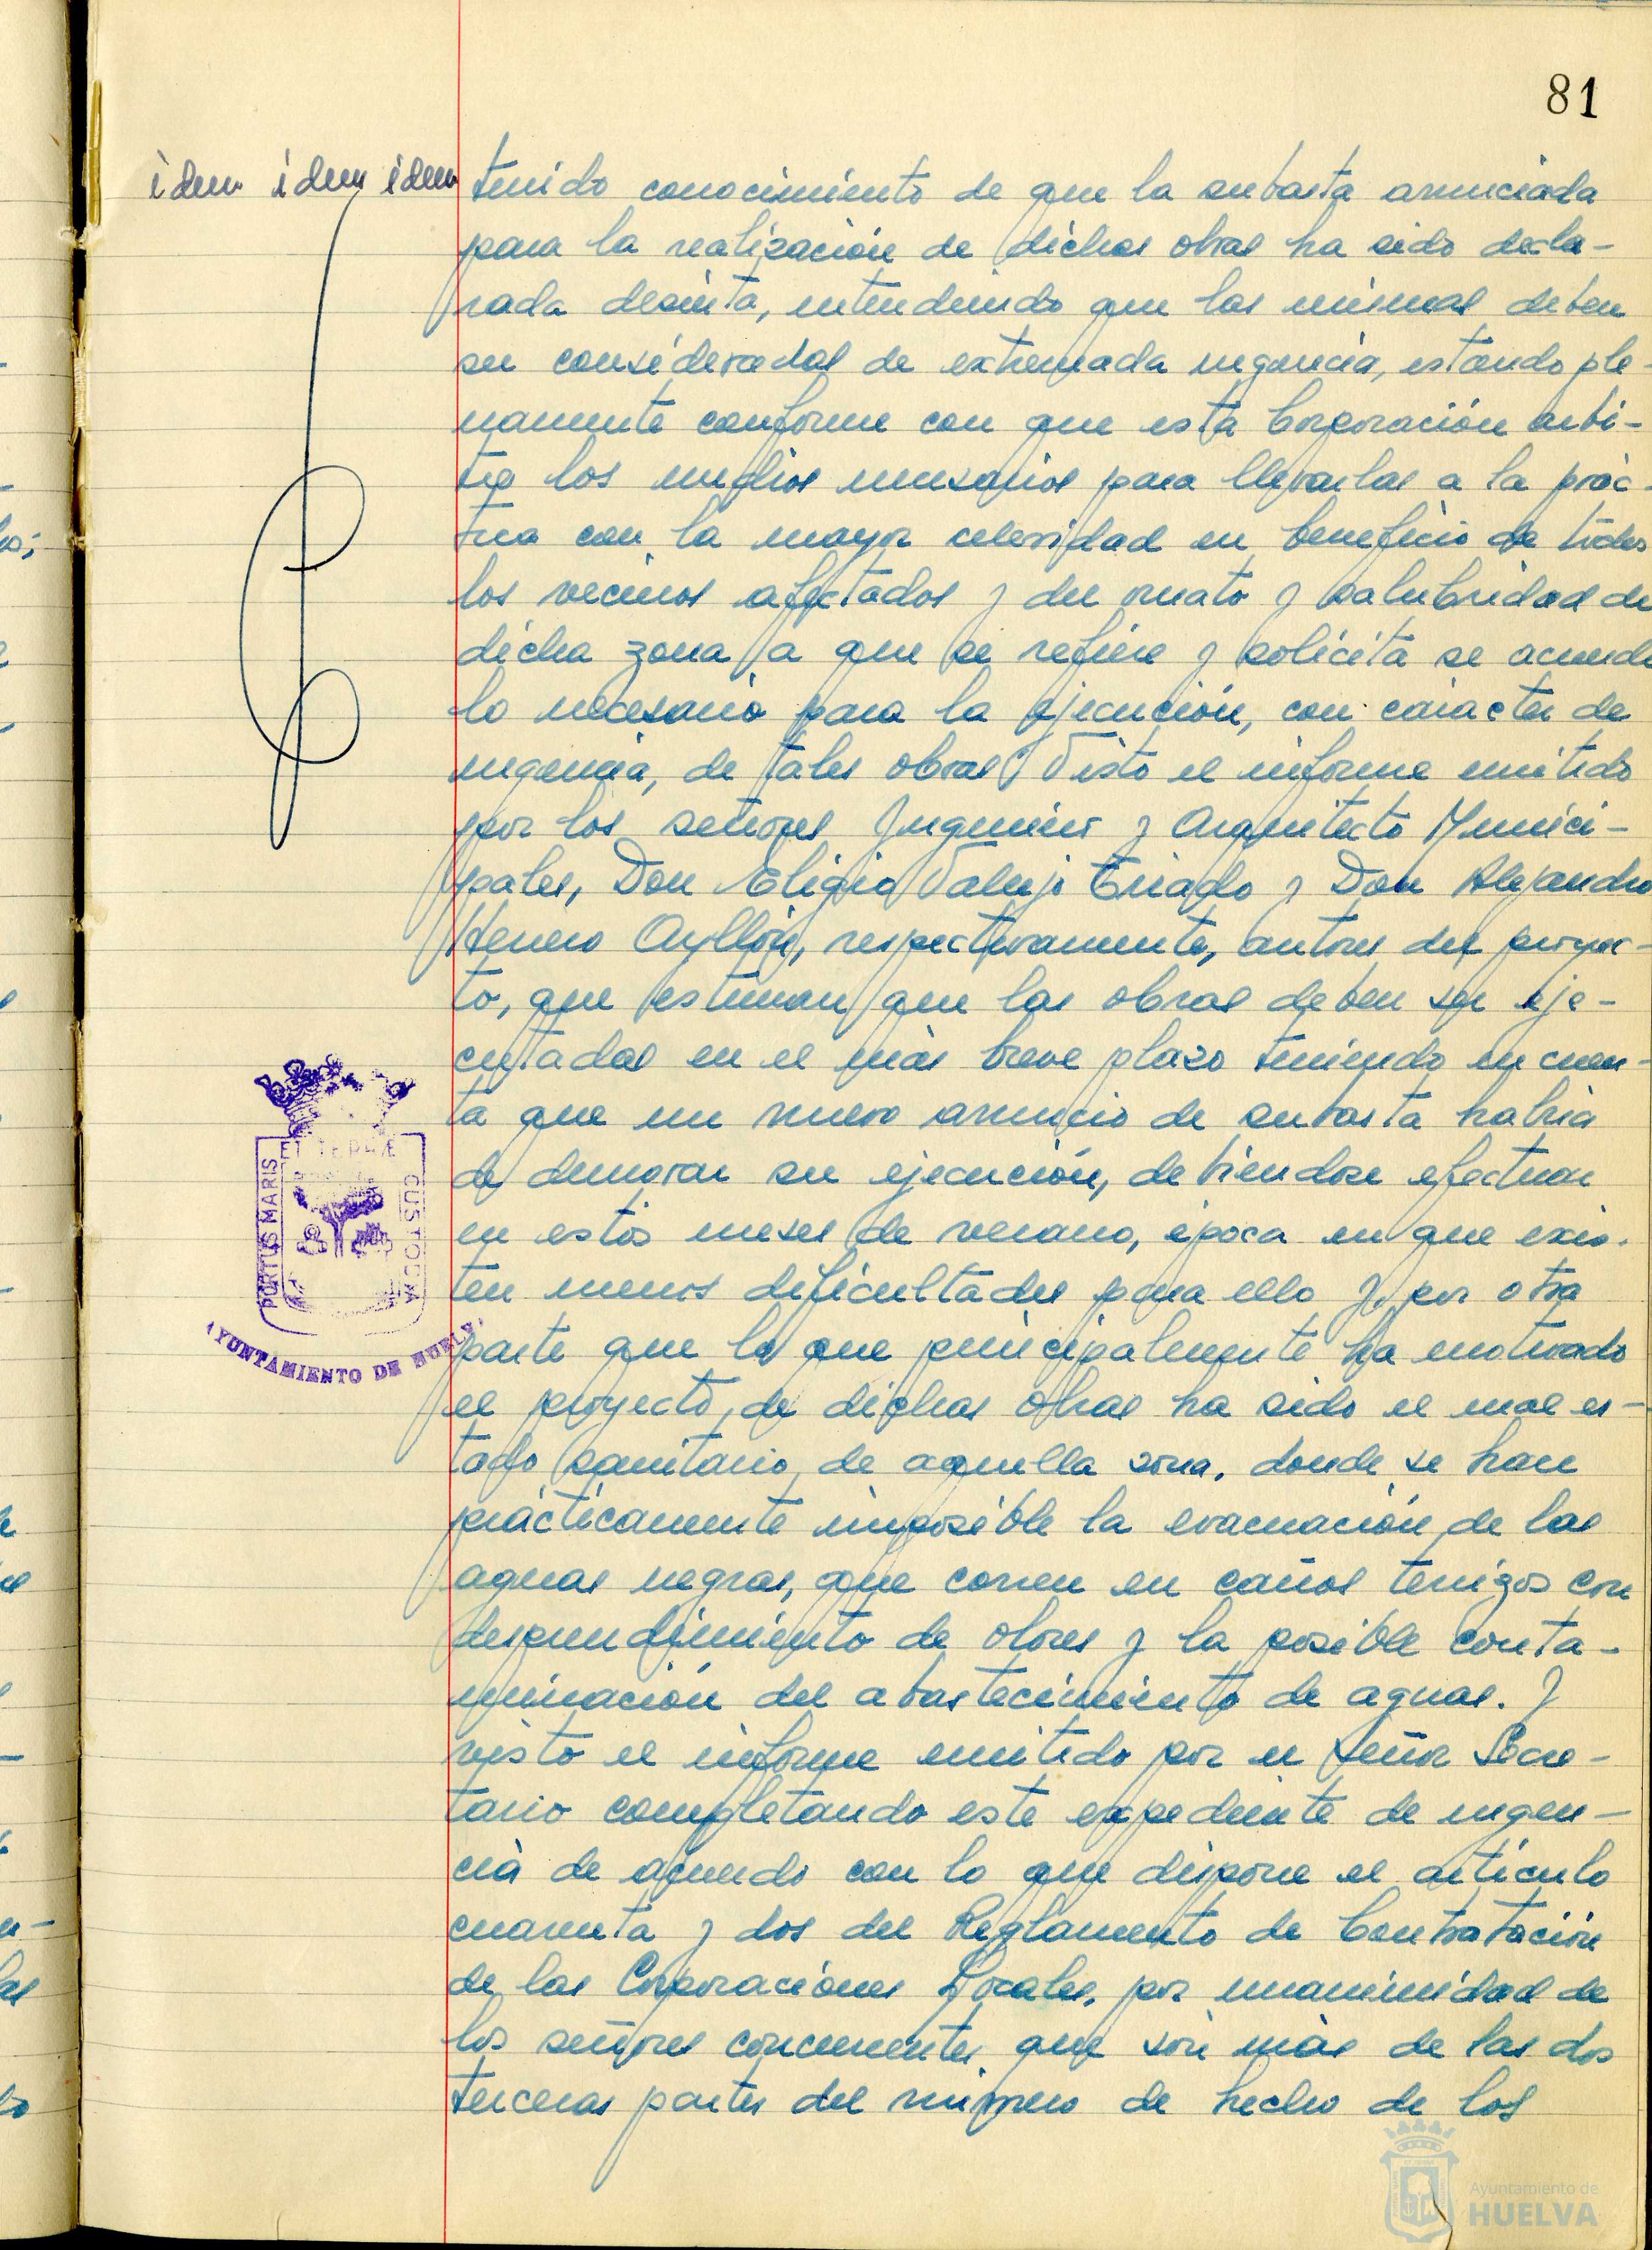 81
idem idem idem
tenido conocimiento de que la subasta anunciada
para la realización de dichas obras ha sido decla-
rada desierta, entendiendo que las mismas deben
ser consideradas de extremada urgencia, estando ple-
namente conforme con que esta Corporación arbi-
tre los medios necesarios para llevarlas a la prác-
tica con la mayor celeridad en beneficio de todos
los vecinos afectados y del ornato y salubridad de
dicha zona a que se refiere y solicita se acuerde
lo necesario para la ejecución, con caracter de
urgencia, de tales obras. Visto el informe emitido
por los señores Ingeniero y Arquitecto Munici-
pales, Don Eligio Vallejo Criado y Don Alejandro
Herrero Ayllón, respectivamente, autores del proyec-
to, que estiman que las obras deben ser eje-
cutadas en el más breve plazo teniendo en cuen-
ta que un nuevo anuncio de subasta habria
de demorar su ejecución, debiendose efectuar
en estos meses de verano, época en que exis-
ten menos dificultades para ello y, por otra
parte que lo que principalmente ha motivado
el proyecto de dichas obras ha sido el mal es-
tado sanitario de aquella zona, donde se hace
prácticamente imposible la evacuación de las
aguas negras, que corren en caños terrizos con
desprendimiento de olores y la posible conta-
minación del abastecimiento de aguas. Y
visto el informe emitido por el Señor Secre-
tario completando este expediente de urgen-
cia de acuerdo con lo que dispone el artículo
cuarenta y dos del Reglamento de Contratación
de las Corporaciones Locales, por unanimidad de
los señores concurrentes, que son más de las dos
terceras partes del número de hecho de los
PORTUS MARIS
ET TERRÆ
CUSTODIA
AYUNTAMIENTO DE HUELVA
Ayuntamiento de
HUELVA